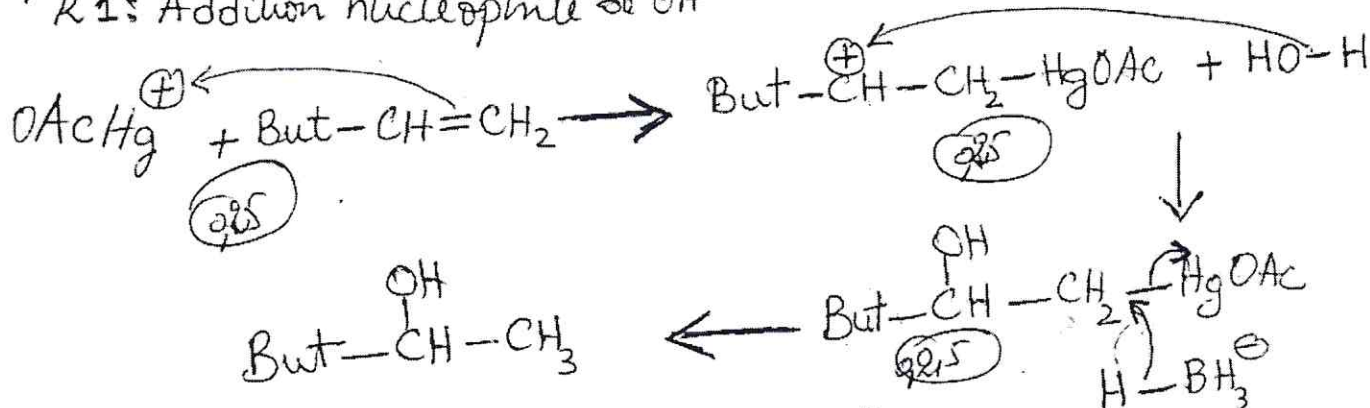 R1: Addition nucléophile de OH
OAcHg⊕ + But-CH=CH2 → But-⊕CH-CH2-HgOAc + HO-H
0,25
0,25
But-CH(OH)-CH3 ← But-CH(OH)-CH2-HgOAc
0,25
H-BH3⊖